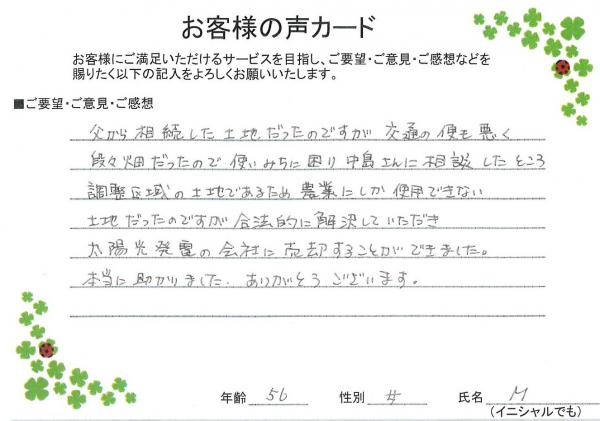 お客様の声カード
お客様にご満足いただけるサービスを目指し、ご要望・ご意見・ご感想などを
賜りたく以下の記入をよろしくお願いいたします。
■ご要望・ご意見・ご感想
父から相続した土地だったのですが 交通の便も悪く
段々畑だったので 使いみちに困り 中島さんに相談したところ
調整区域の土地であるため 農業にしか使用できない
土地だったのですが 合法的に解決していただき
太陽光発電の会社に売却することができました。
本当に助かりました. ありがとうございます。
年齢 56 性別 女 氏名 M
(イニシャルでも)